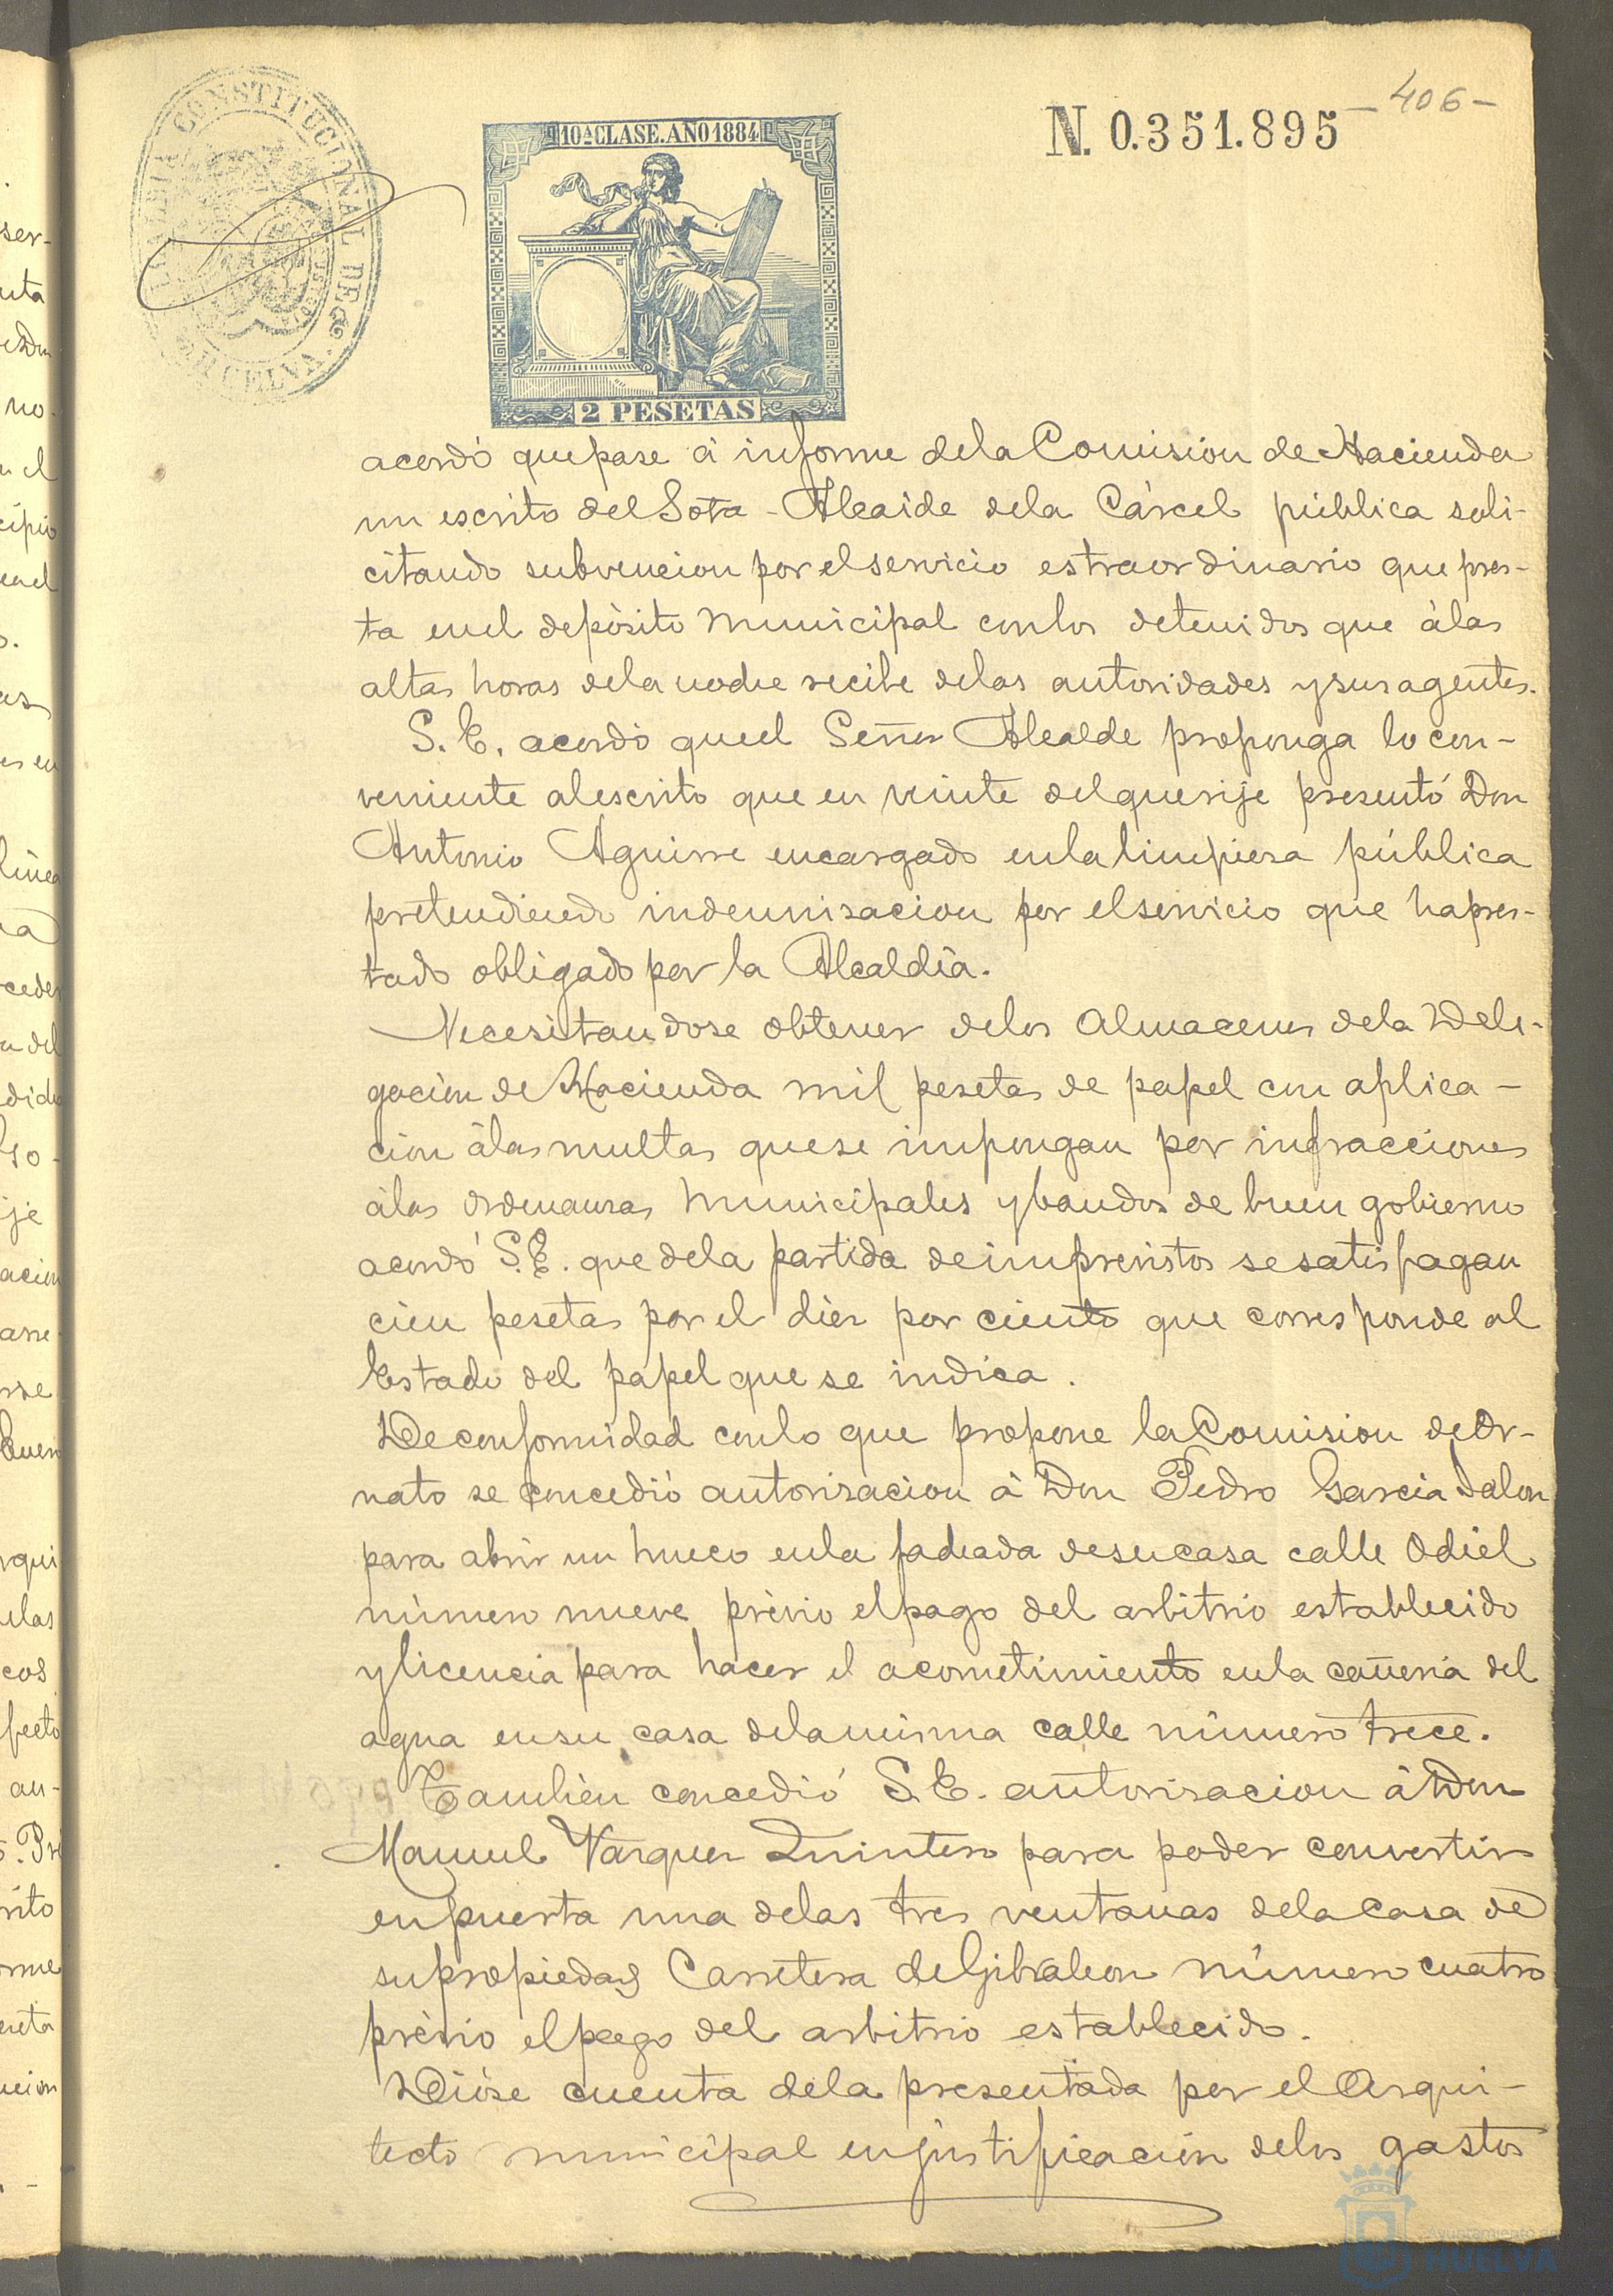 -406-
N. 0.351.895
ALCALDIA CONSTITUCIONAL DE HUELVA
10ª CLASE. AÑO 1884
2 PESETAS
acordó que pase á informe de la Comision de Hacienda
un escrito del Sota-Alcaide dela Cárcel pública soli-
citando subvencion por el servicio estraordinario que pres-
ta enel depósito Municipal conlos detenidos que álas
altas horas dela noche recibe delas autoridades y sus agentes.
S. E. acordó queel Señor Alcalde proponga lo con-
veniente al escrito que en veinte del que rije presentó Don
Antonio Aguirre encargado enla limpieza pública
pretendiendo indemnizacion por el servicio que ha pres-
tado obligado por la Alcaldía.
Necesitandose obtener delos Almacenes dela Dele-
gacion de Hacienda mil pesetas de papel con aplica-
cion álas multas que se impongan por infracciones
álas ordenanzas Municipales y bandos de buen gobierno
acordó S.E. que dela partida de imprevistos se satisfagan
cien pesetas por el diez por ciento que corresponde al
Estado del papel que se indica.
De conformidad conlo que propone la Comision de Or-
nato se concedió autorizacion á Don Pedro Garcia Jalon
para abrir un hueco enla fachada de su casa calle Odiel
número nueve prévio el pago del arbitrio establecido
y licencia para hacer el acometimiento enla cañeria del
agua en su casa dela misma calle número trece.
Tambien concedió S. E. autorizacion á Don
Manuel Vazquez Quintero para poder convertir
en puerta una delas tres ventanas dela casa de
su propiedad Carretera de Gibraleon número cuatro
prévio el pago del arbitrio establecido.
Dióse cuenta dela presentada por el Arqui-
tecto municipal en justificación delos gastos
Ayuntamiento de
HUELVA